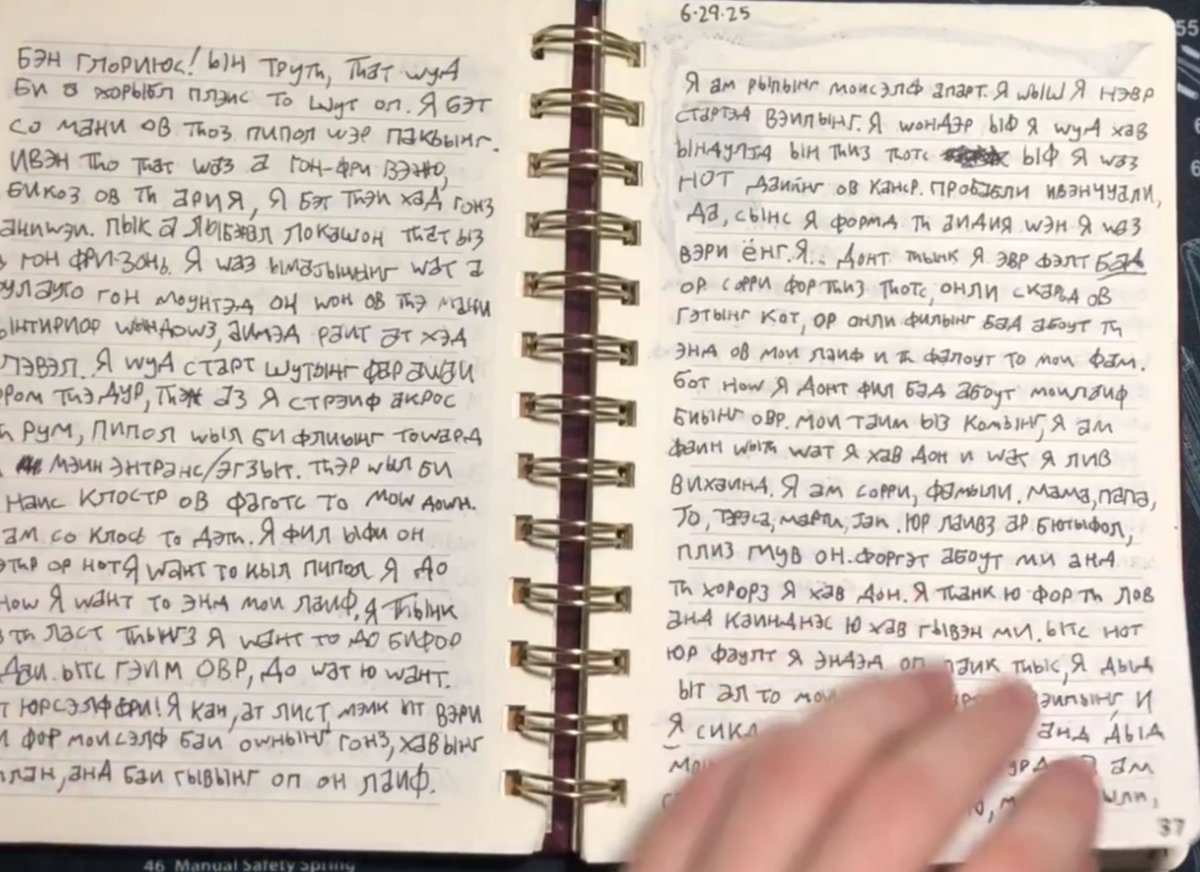 6·29·25
БЭН ГЛОРИЮС! ЫН ТРУТҺ, ТҺАТ WУД
БИ а ХОРЫБЛ ПЛЭИС ТО ШУТ ОП. Я БЭТ
СО МАНИ ОВ ТҺОЗ ПИПОЛ WЭР ПАКЫНГ.
ИВЭН ТҺО ТҺАТ WАЗ а ГОН-ФРИ
БИКОЗ ОВ ТҺ АРИЯ, Я БЭТ ТҺЭИ ХАД ГОНЗ
ПЫК а ЛОКАШОН ТҺАТ ЫЗ
ГОН ФРИ-ЗОНЬ. Я WАЗ WАТ а
ГОН МОУНТЭД ОН WОН ОВ ТҺЭ МАНИ
ЫНТИРИОР WЫНДОWЗ, АИМЭД РАИТ АТ ХЭД
ЛЭВЭЛ. Я WУД СТАРТ ШУТЫНГ ФАР АWАИ
ТҺЭ ДУР, АЗ Я СТРЭИФ АКРОС
РУМ, ПИПОЛ WЫЛ БИ ФЛИЫНГ ТОWАРД
МЭИН ЭНТРАНС/ЭГЗЫТ. ТҺЭР WЫЛ БИ
НАИС КЛОСТР ОВ ФАГОТС ТО МОW ДОWН.
АМ СО КЛОСЬ ТО ДЭТҺ. Я ФИЛ ЫФИ ОН
ОР НОТ Я WАНТ ТО КЫЛ ПИПОЛ Я ДО
НОW Я WАНТ ТО ЭНД МОИ ЛАИФ. Я ТҺЫНК
ТҺ ЛАСТ ТҺЫНГЗ Я WАНТ ТО ДО БИФОР
ДАИ. ЫТС ГЭИМ ОВР, ДО WАТ Ю WАНТ.
ЮРСЭЛФ ФРИ! Я КАН, АТ ЛИСТ, МЭИК ЫТ ВЭРИ
ФОР МОИСЭЛФ БАИ ОWНЫНГ ГОНЗ, ХАВЫНГ
ПЛАН, АНД БАИ ГЫВЫНГ ОП ОН ЛАИФ.
Я АМ РЫПЫНГ МОИСЭЛФ АПАРТ. Я WЫШ Я НЭВР
СТАРТЭД ВЭИПЫНГ. Я WОНДЭР ЫФ Я WУД ХАВ
ЫН ТҺИЗ ТҺОТС ЫФ Я WАЗ
НОТ ДАИЙНГ ОВ КАНСР. ПРОБАБЛИ ИВЭНЧУАЛИ,
ДА, СЫНС Я ФОРМД ТҺ АИДИЯ WЭН Я WАЗ
ВЭРИ ЁНГ. Я.. ДОНТ ТҺЫНК Я ЭВР ФЭЛТ БАД
ОР СОРРИ ФОР ТҺИЗ ТҺОТС, ОНЛИ СКАРЬД ОВ
ГЭТЫНГ КОТ, ОР ОНЛИ ФИЛЫНГ БАД АБОУТ ТҺ
ЭНД ОВ МОИ ЛАИФ И ТҺ ФАЛОУТ ТО МОИ ФАМ.
БОТ НОW Я ДОНТ ФИЛ БАД АБОУТ МОИ ЛАИФ
БИЫНГ ОВР. МОИ ТАИМ ЫЗ КОМЫНГ, Я АМ
ФАИН WЫТҺ WАТ Я ХАВ ДОН И WАТ Я ЛИВ
БИХАИНД. Я АМ СОРРИ, ФАМЫЛИ. МАМА, ПАПА,
ЮР ЛАИВЗ АР БЮТЫФОЛ,
ПЛИЗ МУВ ОН. ФОРГЭТ АБОУТ МИ АНД
ТҺ ХОРОРЗ Я ХАВ ДОН. Я ТҺАНК Ю ФОР ТҺ ЛОВ
АНД КАИНДНЭС Ю ХАВ ГЫВЭН МИ. ЫТС НОТ
ЮР ФАУЛТ Я ЭНДЭД ОП ЛАИК ТҺЫС, Я ДЫД
ЫТ АЛ ТО И
Я АНД ДЫД
АМ
37
46 Manual Safety Spring
55